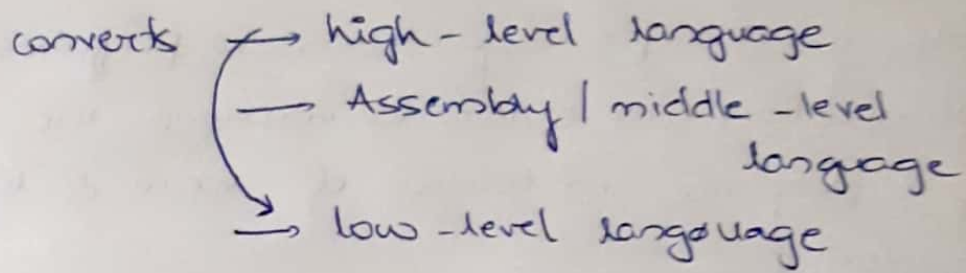 converts → high - level language
→ Assembly / middle - level
language
→ low - level language